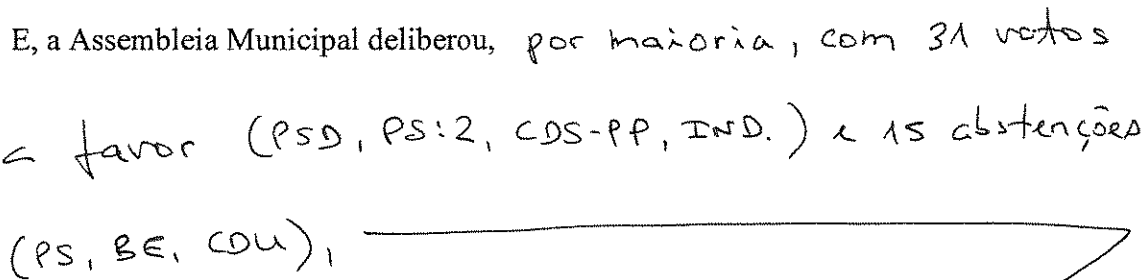 E, a Assembleia Municipal deliberou, por maioria, com 31 votos
a favor (PSD, PS:2, CDS-PP, IND.) e 15 abstenções
(PS, BE, CDU),